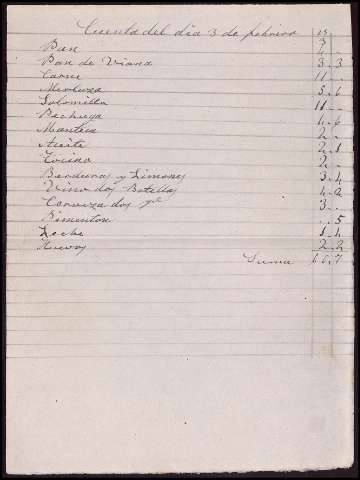 Cuenta del día 3 de febrero
Pan 7 -
Pan de Viana 3 - 3
Carne 11 -
Merluza 5 - 6
Solomillo 11 -
Pechuga 4 - 6
Manteca 2 -
Aceite 2 - 1
Tocino 2 -
Verduras y Limones 3 - 4
Vino dos Botellas 4 - 2
Cerveza dos 3 -
Pimenton - 5
Leche 1 - 4
Huevos 2 - 2
Suma